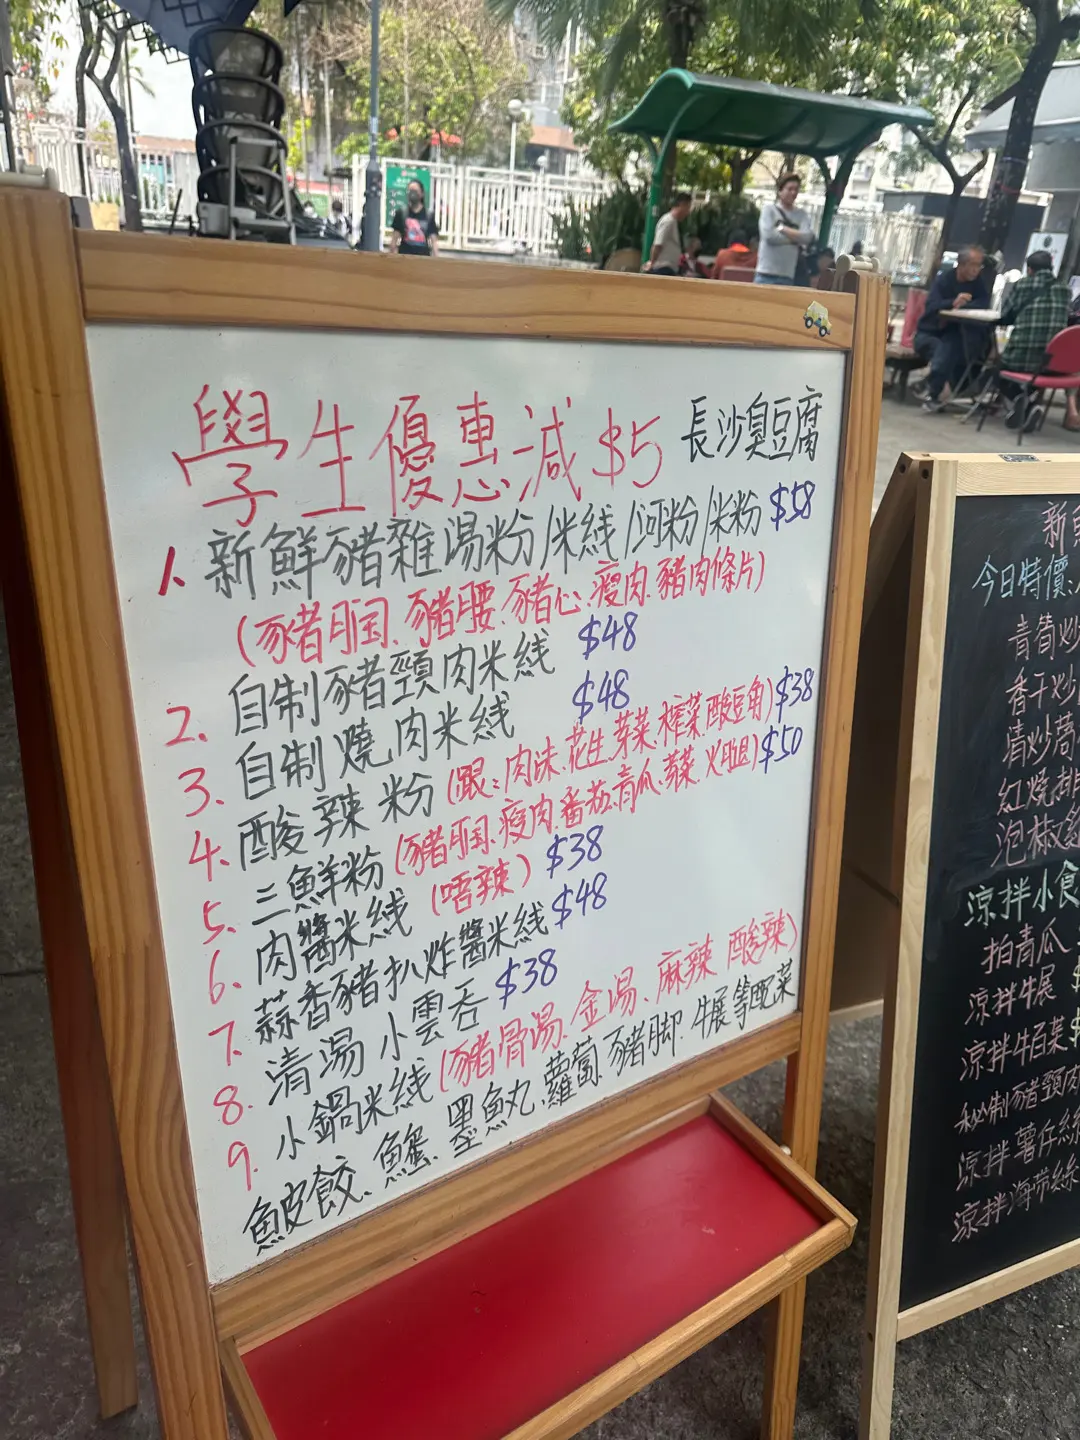 學生優惠減$5 長沙臭豆腐
1. 新鮮豬雜湯粉/米线/河粉/米粉 $58
(豬膶、豬腰、豬心、瘦肉、豬肉條片)
2. 自制豬頸肉米线 $48
3. 自制燒肉米线 $48
4. 酸辣粉(跟:肉味、花生、芽菜、榨菜、酸豆角)$38
5. 三鮮粉(豬膶、瘦肉、番茄、青瓜、菜、火腿)$50
6. 肉醬米线(唔辣)$38
7. 蒜香豬扒炸醬米线 $48
8. 清湯小雲吞 $38
9. 小鍋米线(豬骨湯、金湯、麻辣、酸辣)
魚皮餃、蟹、墨魚丸、蘿蔔、豬脚、牛展等配菜
新
今日特價
青筍炒
香干炒
清炒
紅燒排
泡椒
涼拌小食
拍青瓜
涼拌牛展 $
涼拌牛百菜 $
秘制豬頸肉
涼拌薯仔絲
涼拌海帶絲